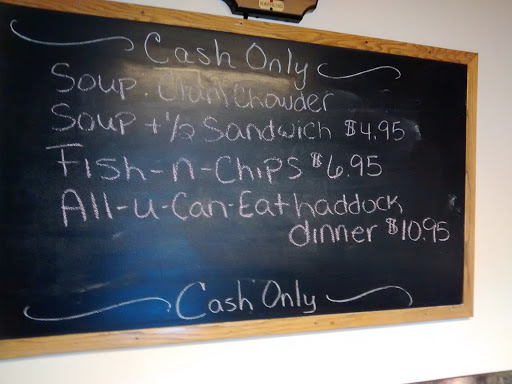 Cash Only
Soup. Clam Chowder
Soup + 1/2 Sandwich $4.95
Fish-n-Chips $6.95
All-u-Can-Eat haddock
dinner $10.95
Cash Only